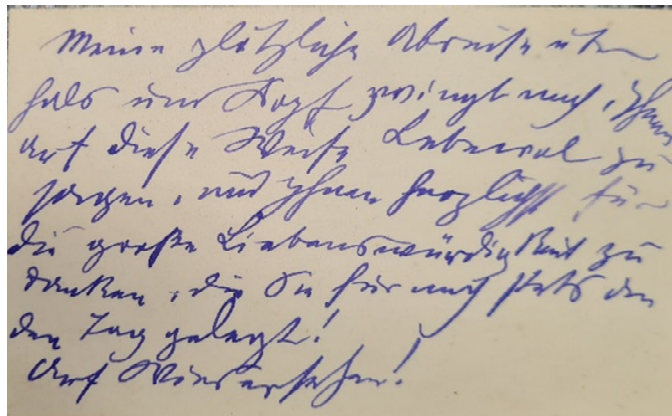 Meine plötzliche Abreise über
Hals und Kopf zwingt mich, Ihnen
auf diese Weise Lebewol zu
sagen, und Ihnen herzlichst für
die große Liebenswürdigkeit zu
danken, die Sie für mich stets an
den Tag gelegt!
Auf Wiedersehen!